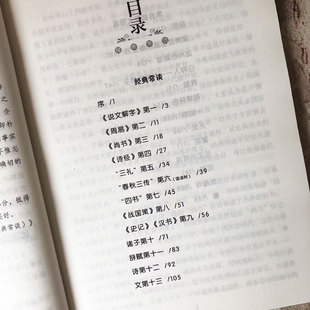 目录
经典常谈
序 /1
《说文解字》第一 /3
《周易》第二 /11
《尚书》第三 /18
《诗经》第四 /27
“三礼”第五 /34
“春秋三传”第六(国语附) /39
“四书”第七 /45
《战国策》第八 /51
《史记》《汉书》第九 /56
诸子第十 /71
辞赋第十一 /83
诗第十二 /92
文第十三 /105